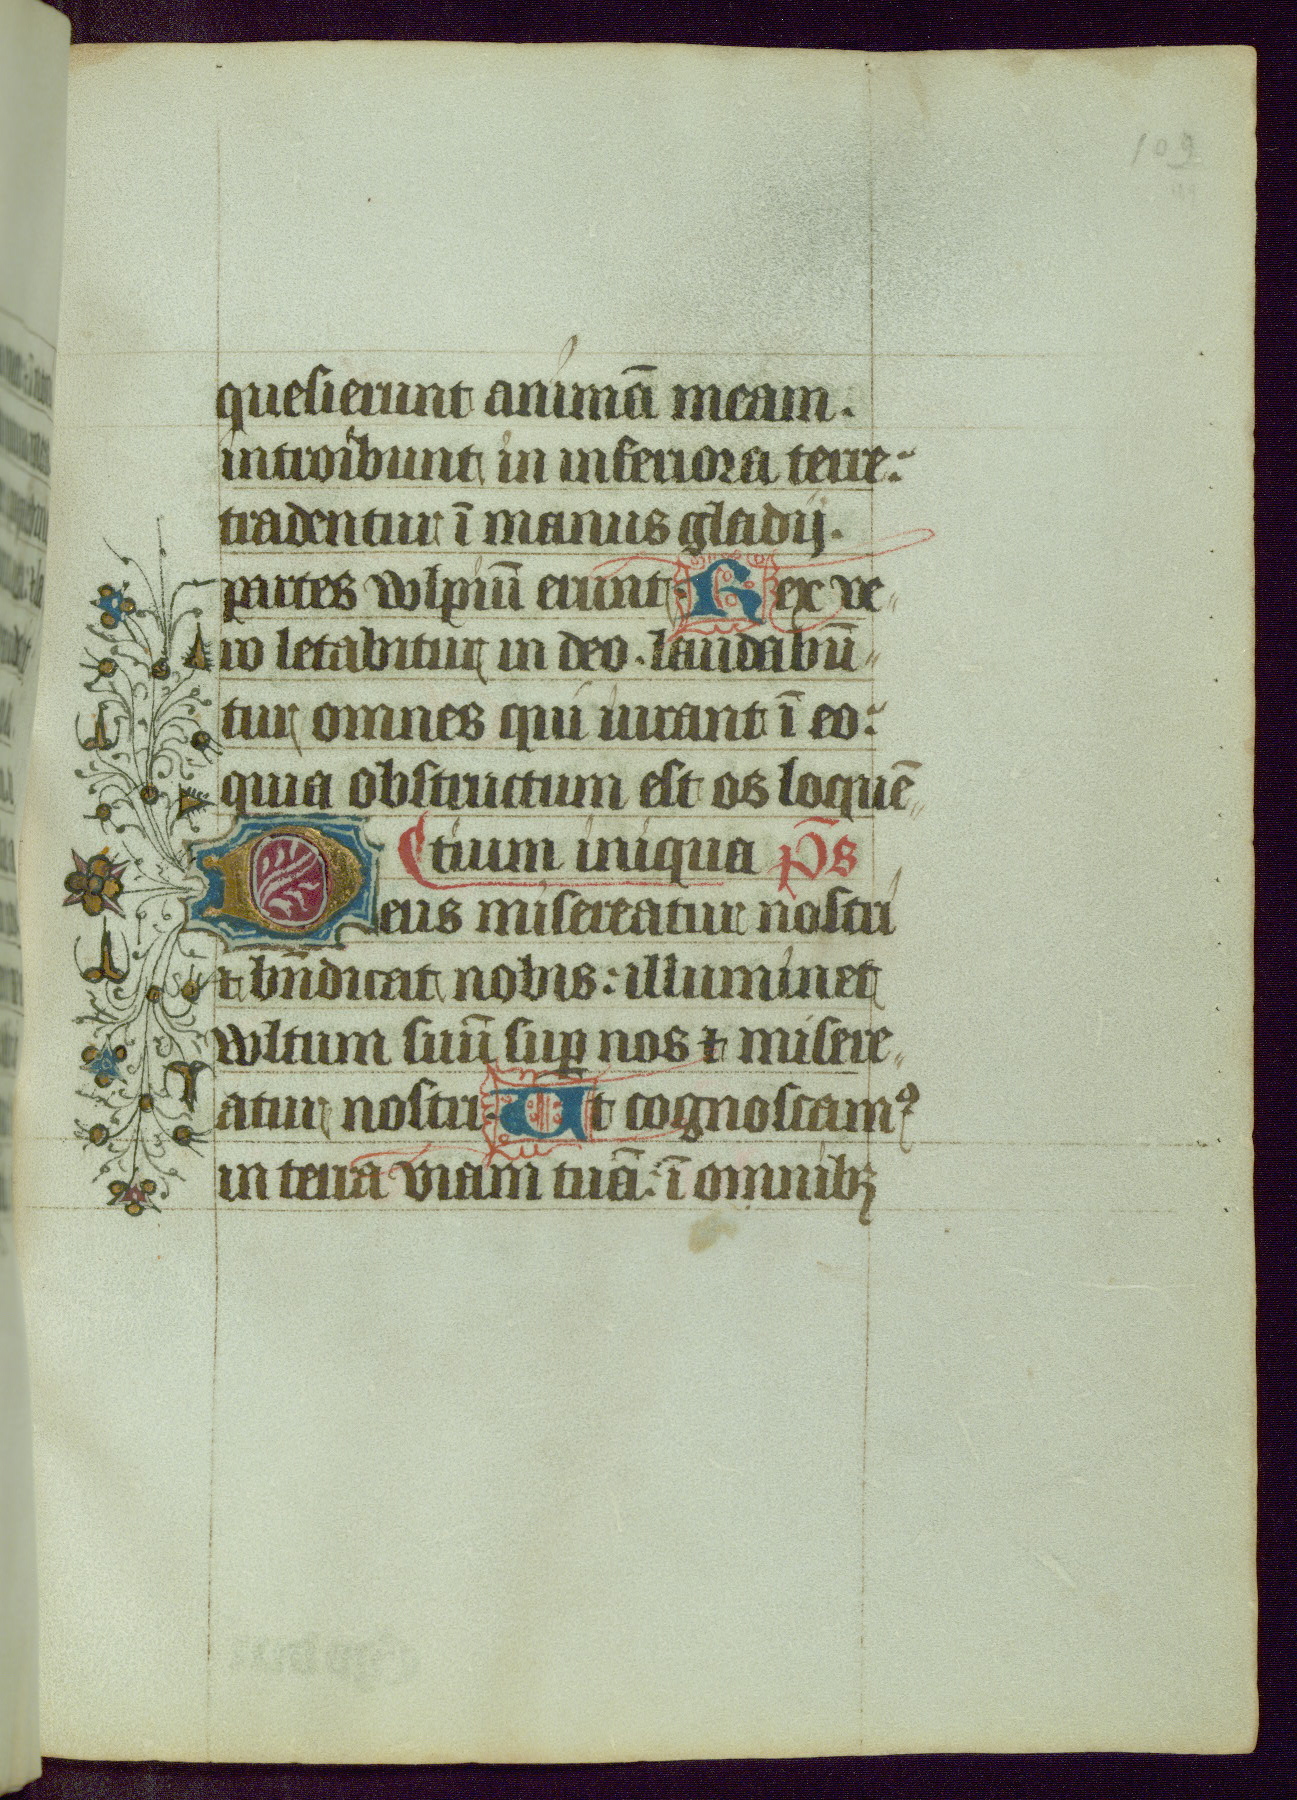 109
quesierunt animā meam.
introibunt in inferiora terre:
tradentur ī manus gladij.
partes vvlpiū erunt. Rex ve〃
ro letabitur in deo. laudabū〃
tur omnes qui iurant ī eo:
quia obstructum est os loquē〃
tium iniqua p̄s
Deus misereatur nostri
⁊ bn̄dicat nobis: illuminet
vvltum suū sup̲ nos ⁊ misere〃
atur nostri. Ut cognoscamꝰ
in terra viam tuā: ī omnibꝫ